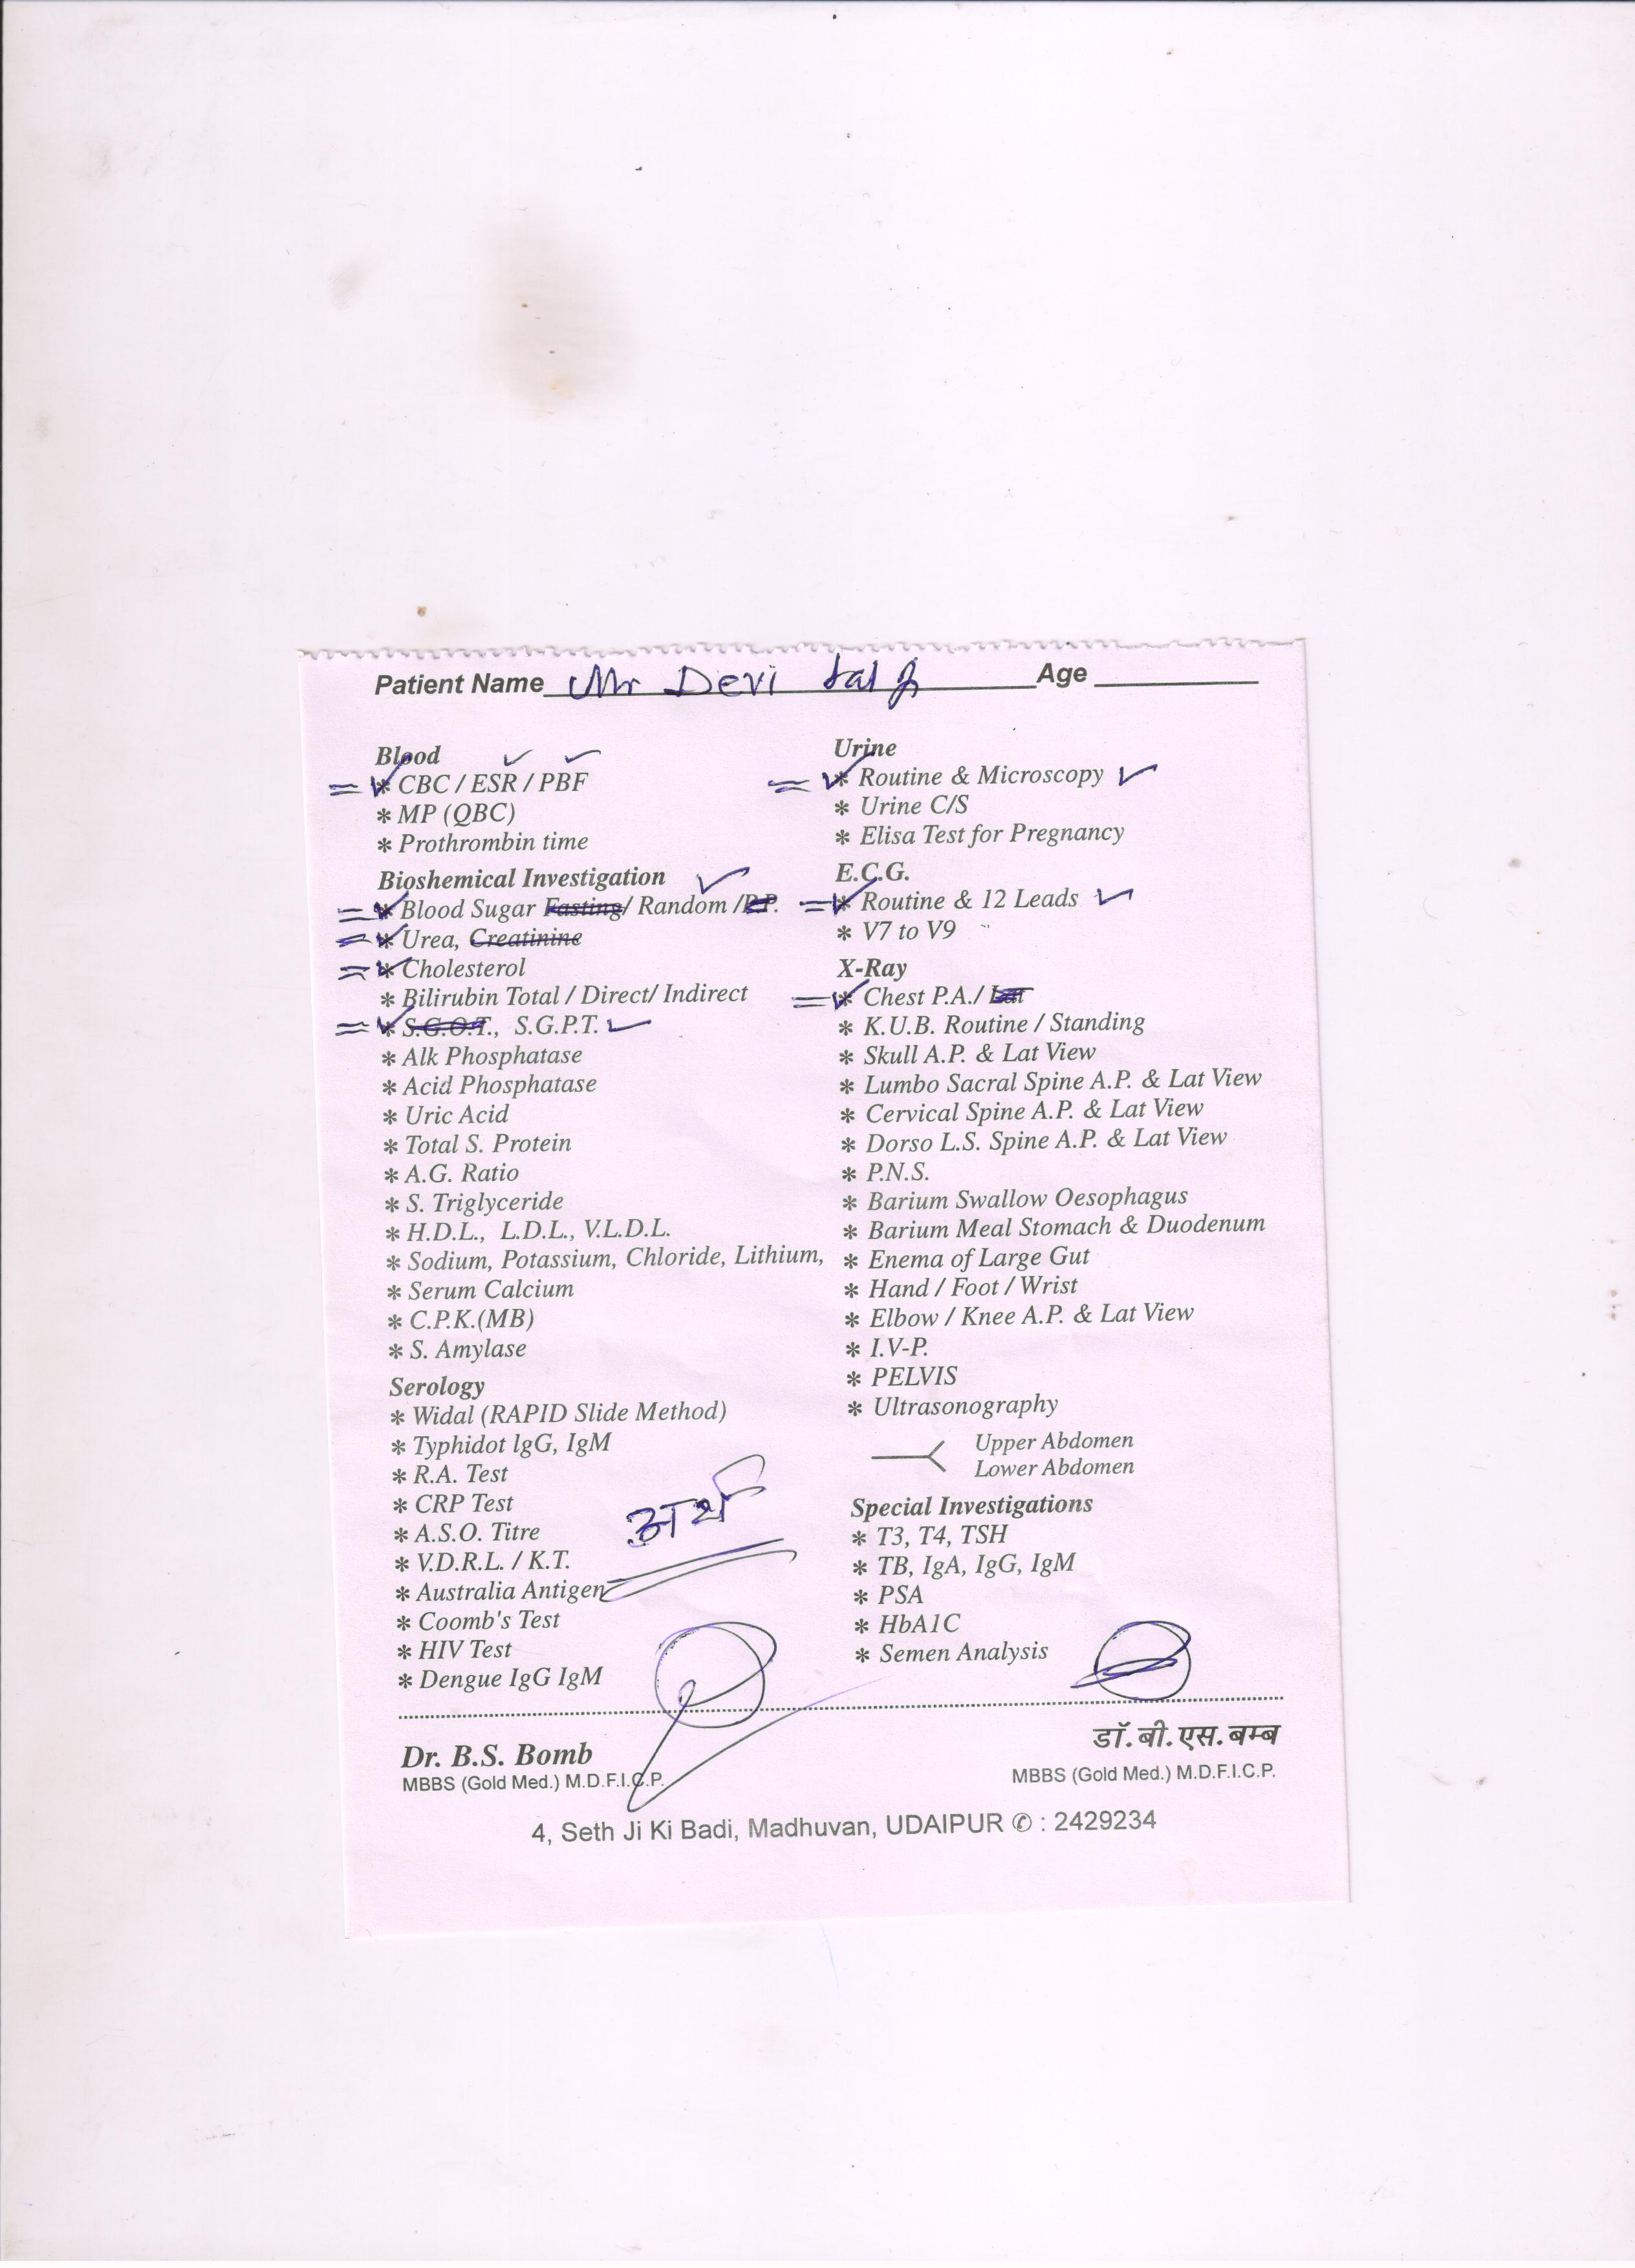 Patient Name Mr Devi Lal Ji Age
Blood
* CBC / ESR / PBF
* MP (QBC)
* Prothrombin time
Bioshemical Investigation
* Blood Sugar Fasting/ Random /P.P.
* Urea, Creatinine
* Cholesterol
* Bilirubin Total / Direct/ Indirect
* S.G.O.T., S.G.P.T.
* Alk Phosphatase
* Acid Phosphatase
* Uric Acid
* Total S. Protein
* A.G. Ratio
* S. Triglyceride
* H.D.L., L.D.L., V.L.D.L.
* Sodium, Potassium, Chloride, Lithium,
* Serum Calcium
* C.P.K.(MB)
* S. Amylase
Serology
* Widal (RAPID Slide Method)
* Typhidot lgG, IgM
* R.A. Test
* CRP Test
* A.S.O. Titre
* V.D.R.L. / K.T.
* Australia Antigen
* Coomb's Test
* HIV Test
* Dengue IgG IgM
अर्थ
Urine
* Routine & Microscopy
* Urine C/S
* Elisa Test for Pregnancy
E.C.G.
* Routine & 12 Leads
* V7 to V9
X-Ray
* Chest P.A./ Lat
* K.U.B. Routine / Standing
* Skull A.P. & Lat View
* Lumbo Sacral Spine A.P. & Lat View
* Cervical Spine A.P. & Lat View
* Dorso L.S. Spine A.P. & Lat View
* P.N.S.
* Barium Swallow Oesophagus
* Barium Meal Stomach & Duodenum
* Enema of Large Gut
* Hand / Foot / Wrist
* Elbow / Knee A.P. & Lat View
* I.V-P.
* PELVIS
* Ultrasonography
Upper Abdomen
Lower Abdomen
Special Investigations
* T3, T4, TSH
* TB, IgA, IgG, IgM
* PSA
* HbA1C
* Semen Analysis
Dr. B.S. Bomb
MBBS (Gold Med.) M.D.F.I.C.P.
डॉ. बी. एस. बम्ब
MBBS (Gold Med.) M.D.F.I.C.P.
4, Seth Ji Ki Badi, Madhuvan, UDAIPUR ✆ : 2429234